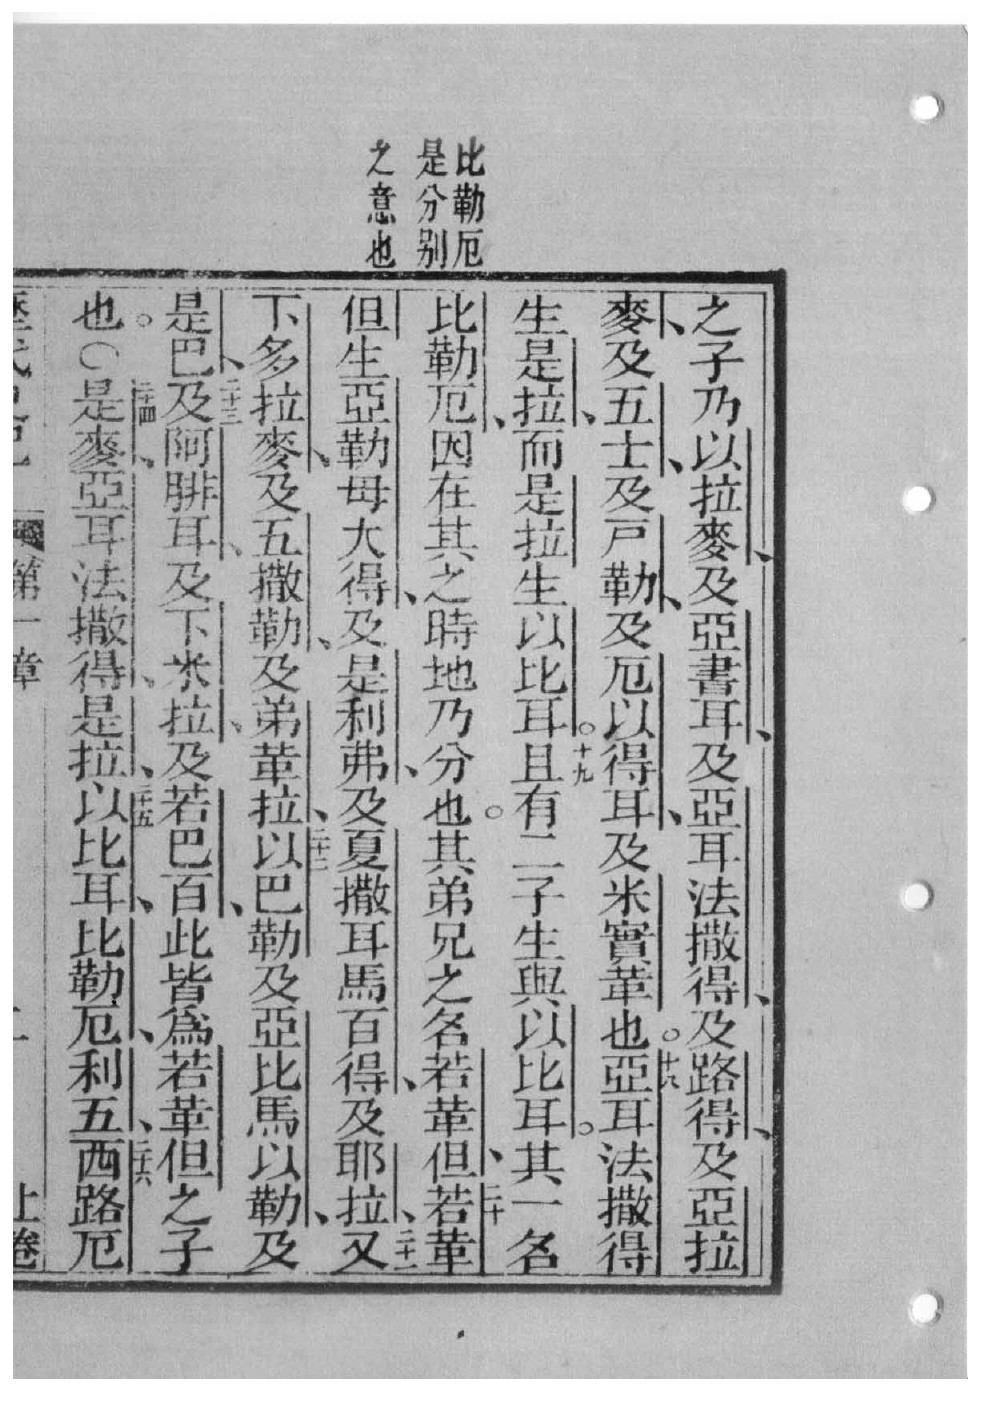 比勒厄
是分别
之意也
之子乃以拉麥、及亞書耳、及亞耳法撒得、及路得、及亞拉
麥、及五士、及戸勒、及厄以得耳、及米實革也。十八亞耳法撒得
生是拉、而是拉生以比耳。十九且有二子生與以比耳。其一名
比勒厄、因在其之時地乃分也。其弟兄之名若革但、二十若革
但生亞勒毋大得、及是利弗、及夏撒耳馬百得、及耶拉、二十一又
下多拉麥、及五撒勒、及弟革拉、二十二以巴勒及亞比馬以勒、及
是巴、二十三及阿腓耳、及下米拉、及若巴百、此皆爲若革但之子
也。〇二十四是麥、亞耳法撒得、是拉、二十五以比耳、比勒厄、利五、二十六西路厄
第一章
二
上卷